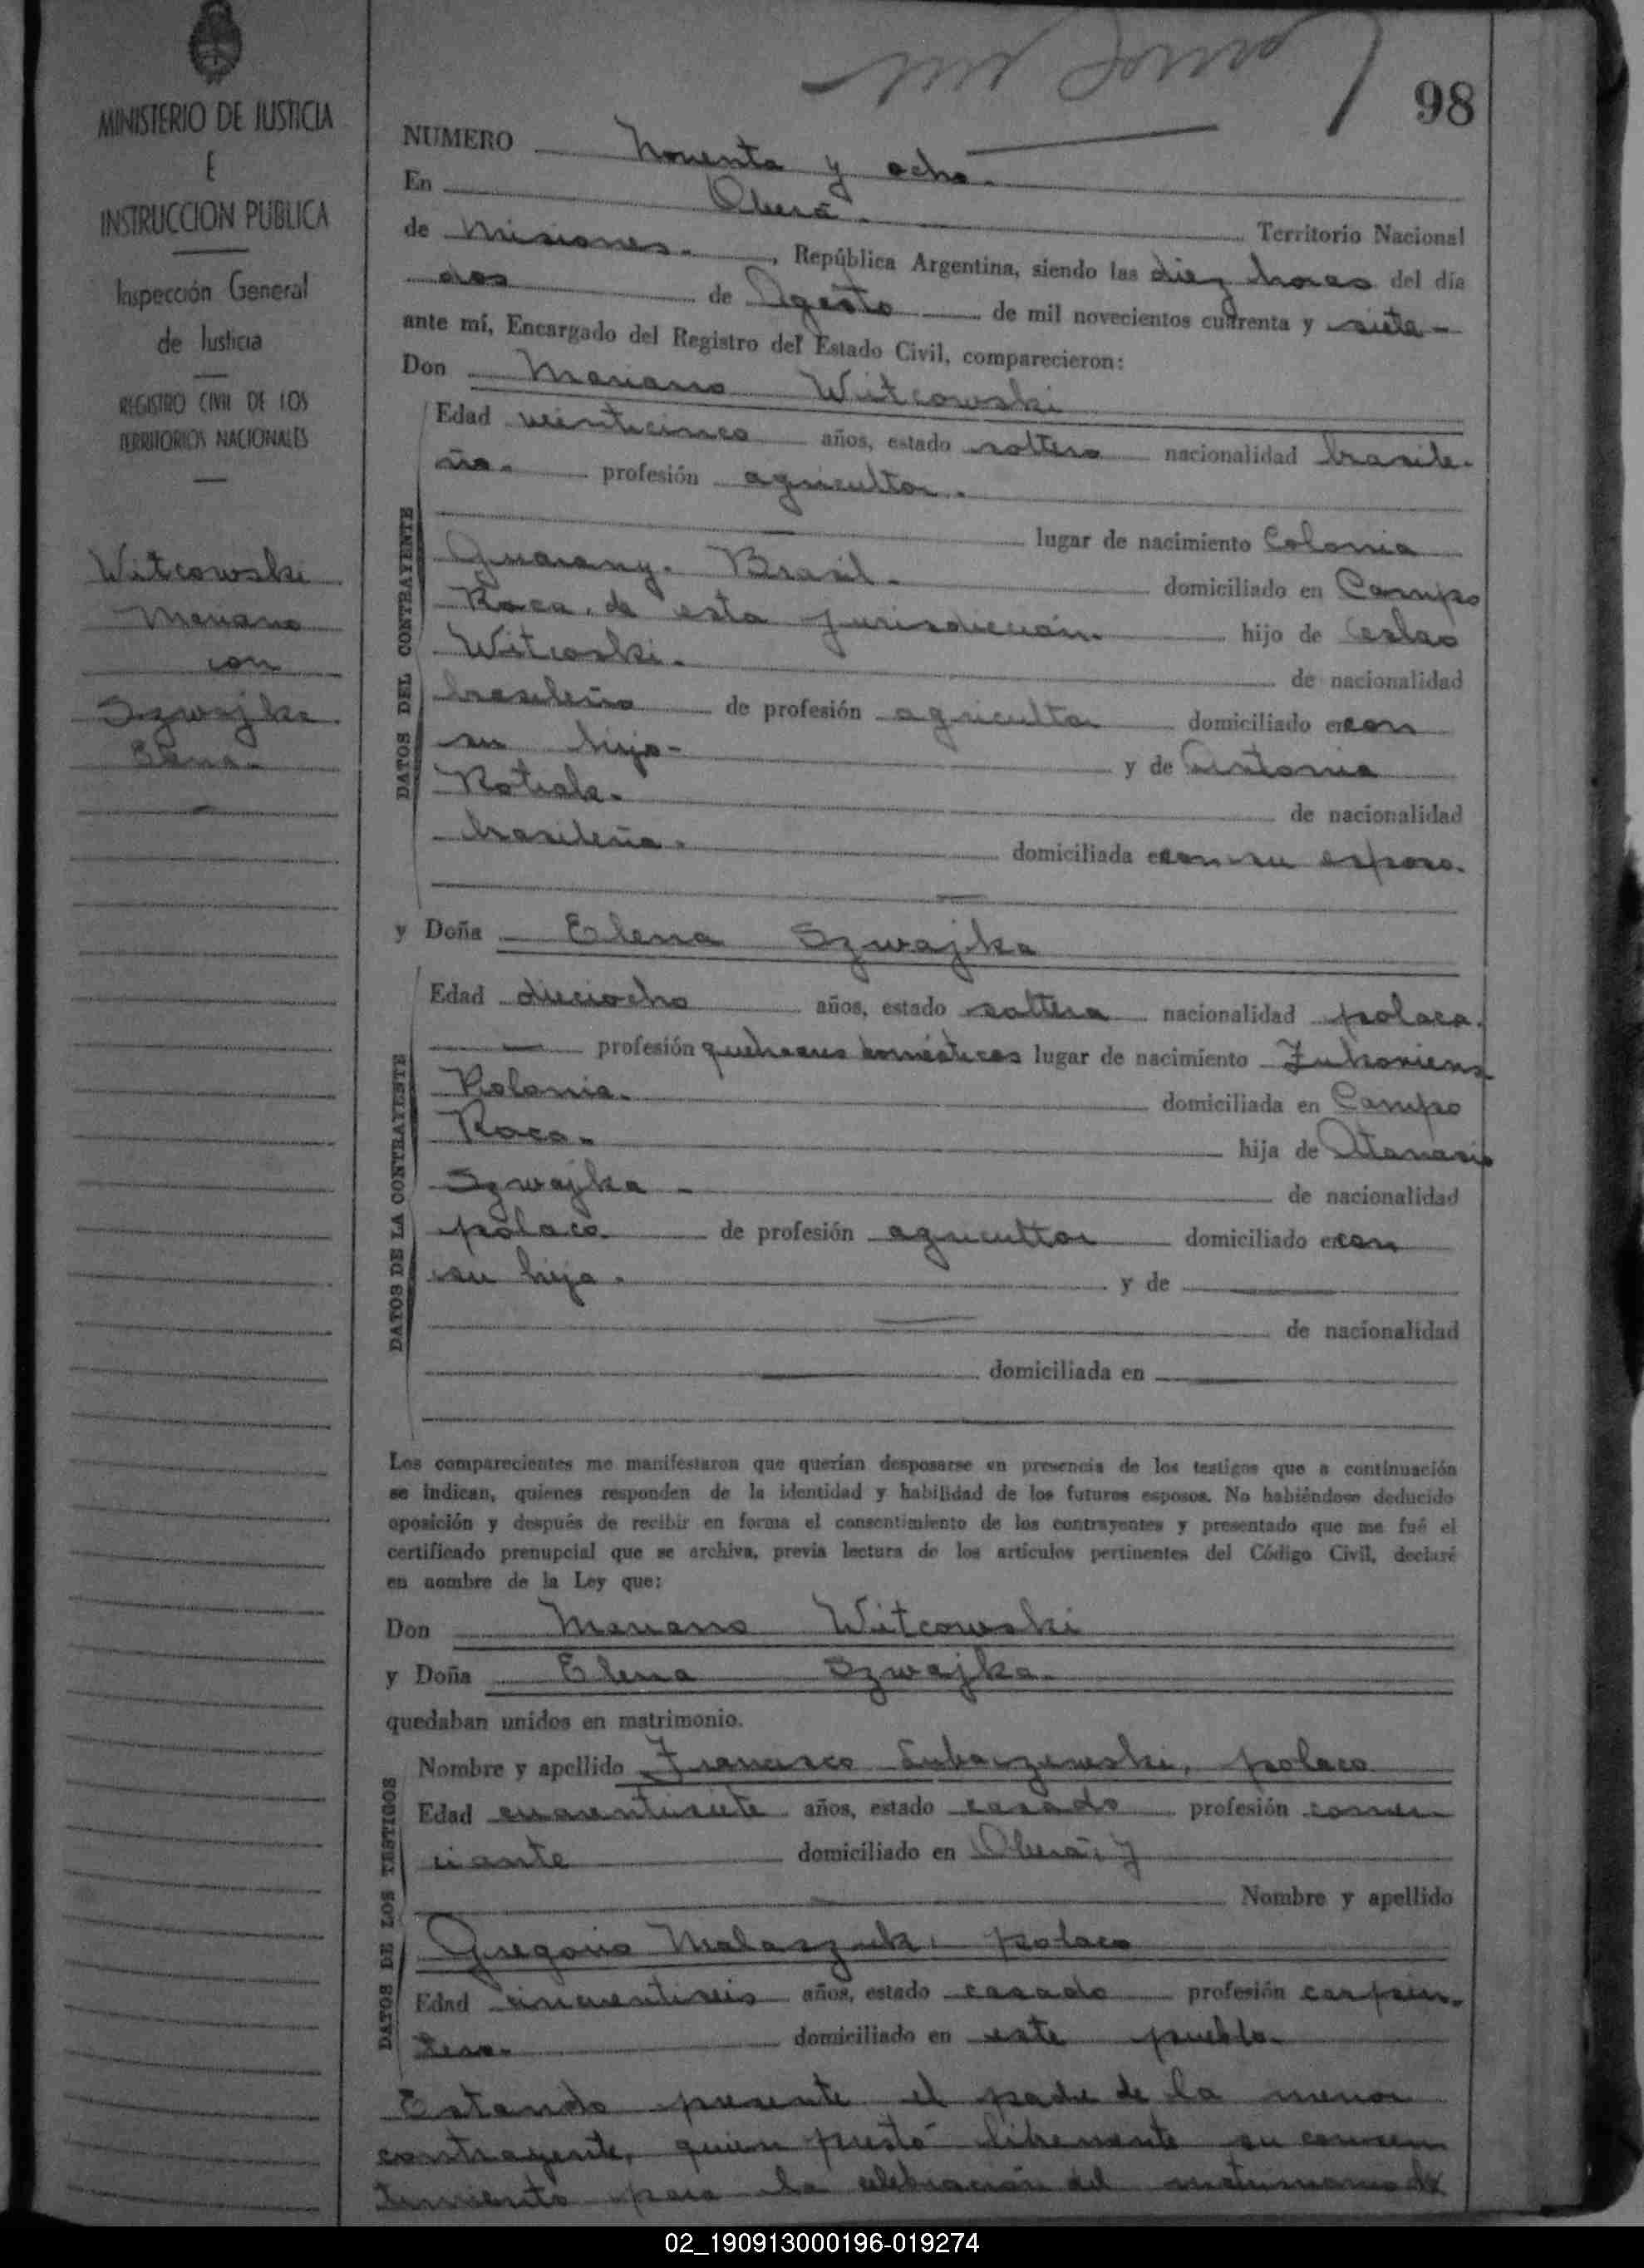 98
MINISTERIO DE JUSTICIA
E
INSTRUCCION PUBLICA
Inspección General
de Justicia
REGISTRO CIVIL DE LOS
TERRITORIOS NACIONALES
Witcowski
Mariano
con
Szwajka
Elena.
NUMERO Noventa y ocho.
En Oberá. Territorio Nacional
de Misiones. , República Argentina, siendo las diez horas del día
dos de Agosto de mil novecientos cuarenta y siete
ante mí, Encargado del Registro del Estado Civil, comparecieron:
Don Mariano Witcowski
DATOS DEL CONTRAYENTE
Edad veinticinco años, estado soltero nacionalidad brasile-
ña. profesión agricultor.
lugar de nacimiento Colonia
Guarany. Brasil. domiciliado en Campo
Roca, de esta jurisdicción. hijo de Ceslao
Witcoski. de nacionalidad
brasileño de profesión agricultor domiciliado en con
su hijo- y de Antonia
de nacionalidad
brasileña. domiciliada en con su esposo.
y Doña Elena Szwajka
DATOS DE LA CONTRAYENTE
Edad dieciocho años, estado soltera nacionalidad polaca.
profesión quehaceres domésticos lugar de nacimiento
Polonia. domiciliada en Campo
Roca. hija de Atanasio
Szwajka - de nacionalidad
polaco de profesión agricultor domiciliado en con
su hija. y de
de nacionalidad
domiciliada en
Los comparecientes me manifestaron que querían desposarse en presencia de los testigos que a continuación
se indican, quienes responden de la identidad y habilidad de los futuros esposos. No habiéndose deducido
oposición y después de recibir en forma el consentimiento de los contrayentes y presentado que me fué el
certificado prenupcial que se archiva, previa lectura de los artículos pertinentes del Código Civil, declaré
en nombre de la Ley que:
Don Mariano Witcowski
y Doña Elena Szwajka.
quedaban unidos en matrimonio.
DATOS DE LOS TESTIGOS
Nombre y apellido Francisco Lubaczewski, polaco
Edad cuarentisiete años, estado casado profesión comer-
ciante domiciliado en Oberá; y
Nombre y apellido
Gregorio Malaszuk, polaco
Edad cincuentiseis años, estado casado profesión carpin-
tero. domiciliado en este pueblo.
Estando presente el padre de la menor
contrayente, quien prestó libremente su consen
timiento para la celebración del matrimonio de
02_190913000196-019274